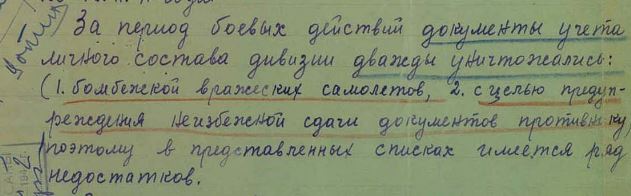 За период боевых действий документы учета
личного состава дивизии дважды уничтожались:
(1. бомбежкой вражеских самолетов, 2. с целью предуп-
реждения неизбежной сдачи документов противнику,
поэтому в представленных списках имеется ряд
недостатков.